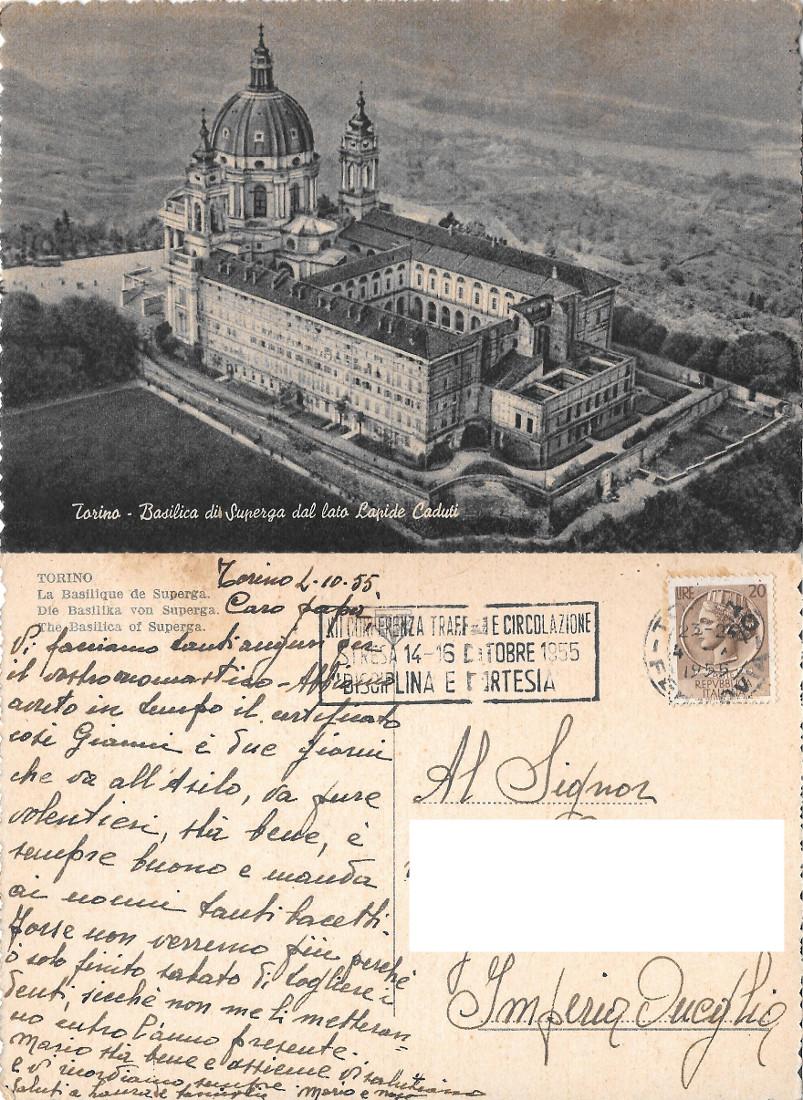 Torino - Basilica di Superga dal lato Lapide Caduti
TORINO
La Basilique de Superga.
Die Basilika von Superga.
The Basilica of Superga.
Torino 2-10-55
Caro papà
Vi facciamo tanti auguri per
il vostro onomastico -
avuto in tempo il certificato
così Gianni è due giorni
che va all'Asilo, va pure
volentieri, stà bene, è
sempre buono e manda
ai nonni tanti bacetti.
Forse non verremo più perchè
ò solo finito sabato di togliere i
denti, sicchè non me li metteran=
no entro l'anno presente.
Mario stà bene e assieme vi salutiamo
e vi ricordiamo sempre
Saluti a Laura e famiglia Mario e
XII CONFERENZA TRAFF E CIRCOLAZIONE
STRESA 14-16 OTTOBRE 1955
"DISCIPLINA E CORTESIA
LIRE 20
REPUBBLICA
ITALIANA
1955
Al Signor
Imperia Oneglia